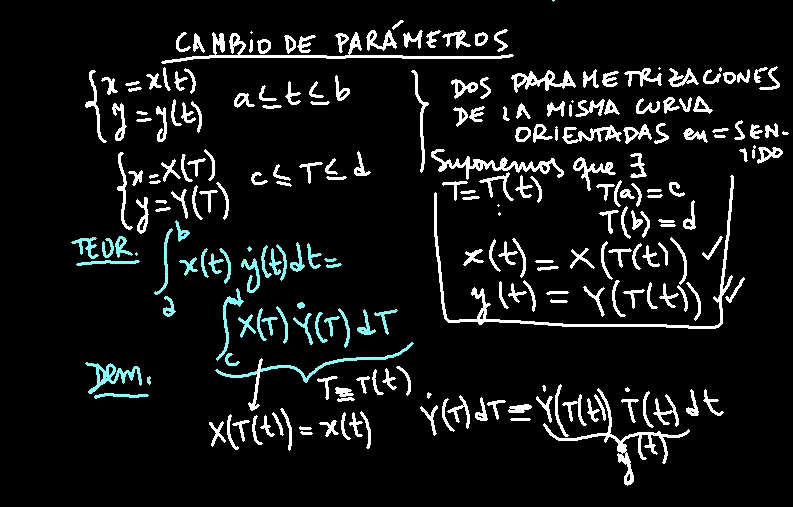 CAMBIO DE PARÁMETROS
x = x(t)
y = y(t)
a ≤ t ≤ b
x = X(T)
y = Y(T)
c ≤ T ≤ d
DOS PARAMETRIZACIONES
DE LA MISMA CURVA
ORIENTADAS en = SEN-
TIDO
Suponemos que ∃
T = T(t) T(a) = c
: T(b) = d
x(t) = X(T(t)) ✓
y(t) = Y(T(t)) ✓
TEOR. ∫_a^b x(t) ẏ(t) dt =
∫_c^d X(T) Ẏ(T) dT
Dem.
T ≡ T(t)
X(T(t)) = x(t)
Ẏ(T) dT = Ẏ(T(t)) Ṫ(t) dt
ẏ(t)